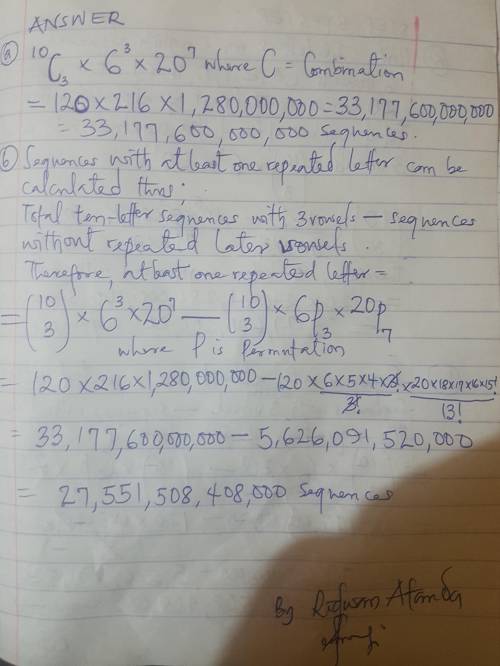 ANSWER
(a) ¹⁰C₃ × 6³ × 20⁷ where C = Combination
= 120 × 216 × 1,280,000,000 = 33,177,600,000,000
= 33,177,600,000,000 sequences.
(b) Sequences with at least one repeated letter can be
calculated thus;
Total ten-letter sequences with 3 vowels — sequences
without repeated later vowels.
Therefore, at least one repeated letter =
= (10 3) × 6³ × 20⁷ — (10 3) × 6P₃ × 20P₇
where P is Permutation
= 120 × 216 × 1,280,000,000 – 120 × 6×5×4×3!/3! × 20×18×17×16×15!/13!
= 33,177,600,000,000 – 5,626,091,520,000
= 27,551,508,408,000 Sequences
By Ridwan